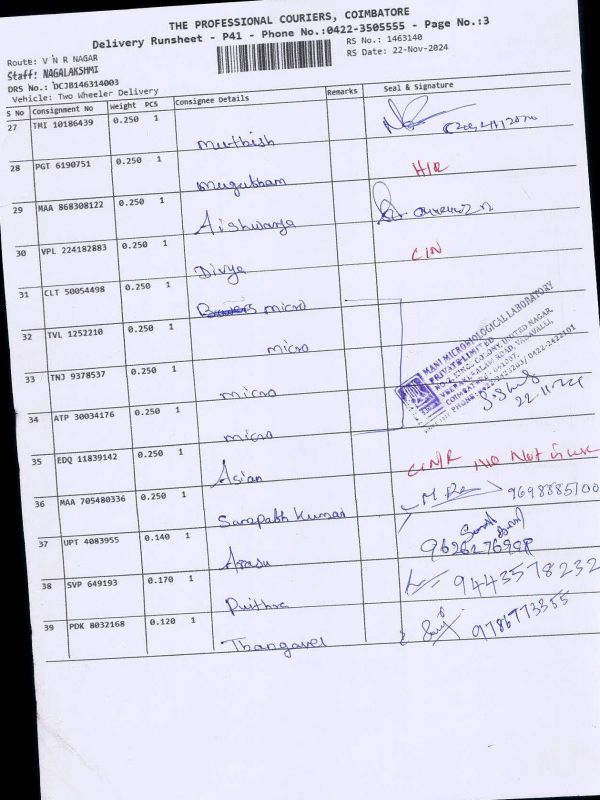 THE PROFESSIONAL COURIERS, COIMBATORE
Delivery Runsheet - P41 - Phone No.:0422-3505555 - Page No.:3
Route: V N R NAGAR
RS No.: 1463140
Staff: NAGALAKSHMI
RS Date: 22-Nov-2024
DRS No.: DCJB146314003
Vehicle: Two Wheeler Delivery
S No Consignment No Weight PCS Consignee Details Remarks Seal & Signature
27 TMI 10186439 0.250 1
28 PGT 6190751 0.250 1 Murugabham
29 MAA 868308122 0.250 1 Aishwarya
30 VPL 224182883 0.250 1 Divya C/N
31 CLT 50054498 0.250 1 micro
32 TVL 1252210 0.250 1 micro
MANI MICROBIOLOGICAL LABORATORY
PRIVATE LIMITED
COLONY, UNITED NAGAR
33 TNJ 9378537 0.250 1 micro
34 ATP 30034176 0.250 1 micro
22.11.24
35 EDQ 11839142 0.250 1 Asian NO Not in use
36 MAA 705480336 0.250 1 Kumar 9698885100
37 UPT 4083955 0.140 1 Arasu
38 SVP 649193 0.170 1 Prithra 9443578232
39 PDK 8032168 0.120 1 Thangavel 9786773355